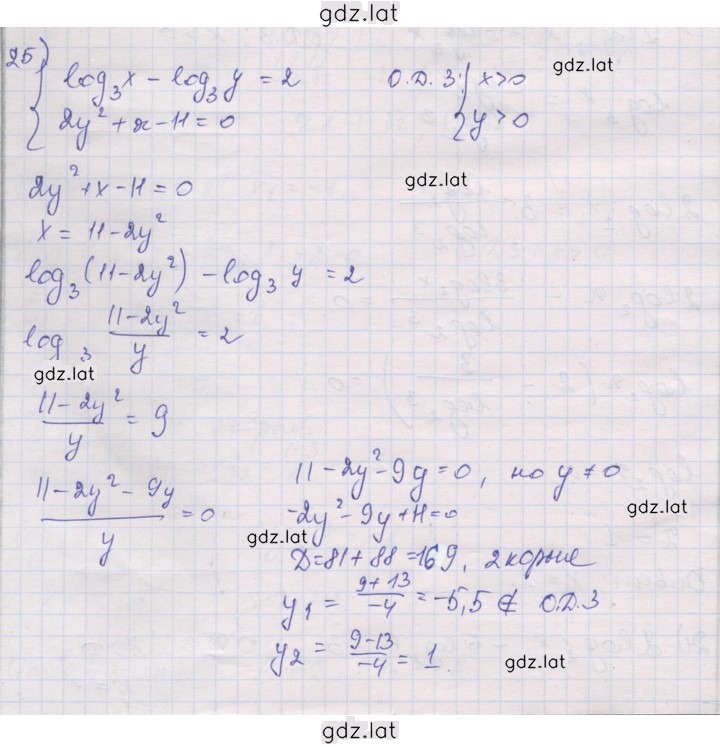 gdz.lat
25)
{ log₃x - log₃y = 2
2y² + x - 11 = 0
О.Д.З: { x>0
y>0
gdz.lat
gdz.lat
2y² + x - 11 = 0
x = 11 - 2y²
log₃(11-2y²) - log₃ y = 2
log₃ (11-2y²)/y = 2
gdz.lat
(11-2y²)/y = 9
(11-2y²-9y)/y = 0
11-2y²-9y=0, но y≠0
-2y²-9y+11=0
gdz.lat
gdz.lat
D=81+88=169, 2 корня
y₁ = (9+13)/-4 = -5,5 ∉ О.Д.З
y₂ = (9-13)/-4 = 1
gdz.lat
gdz.lat